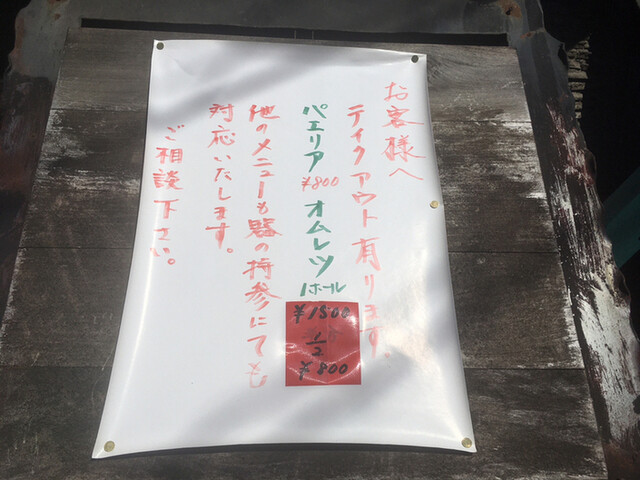 お客様へ
テイクアウト有ります。
パエリア ¥800 オムレツ 1ホール
¥1500
1/2
¥800
他のメニューも器の持参にても
対応いたします。
ご相談下さい。